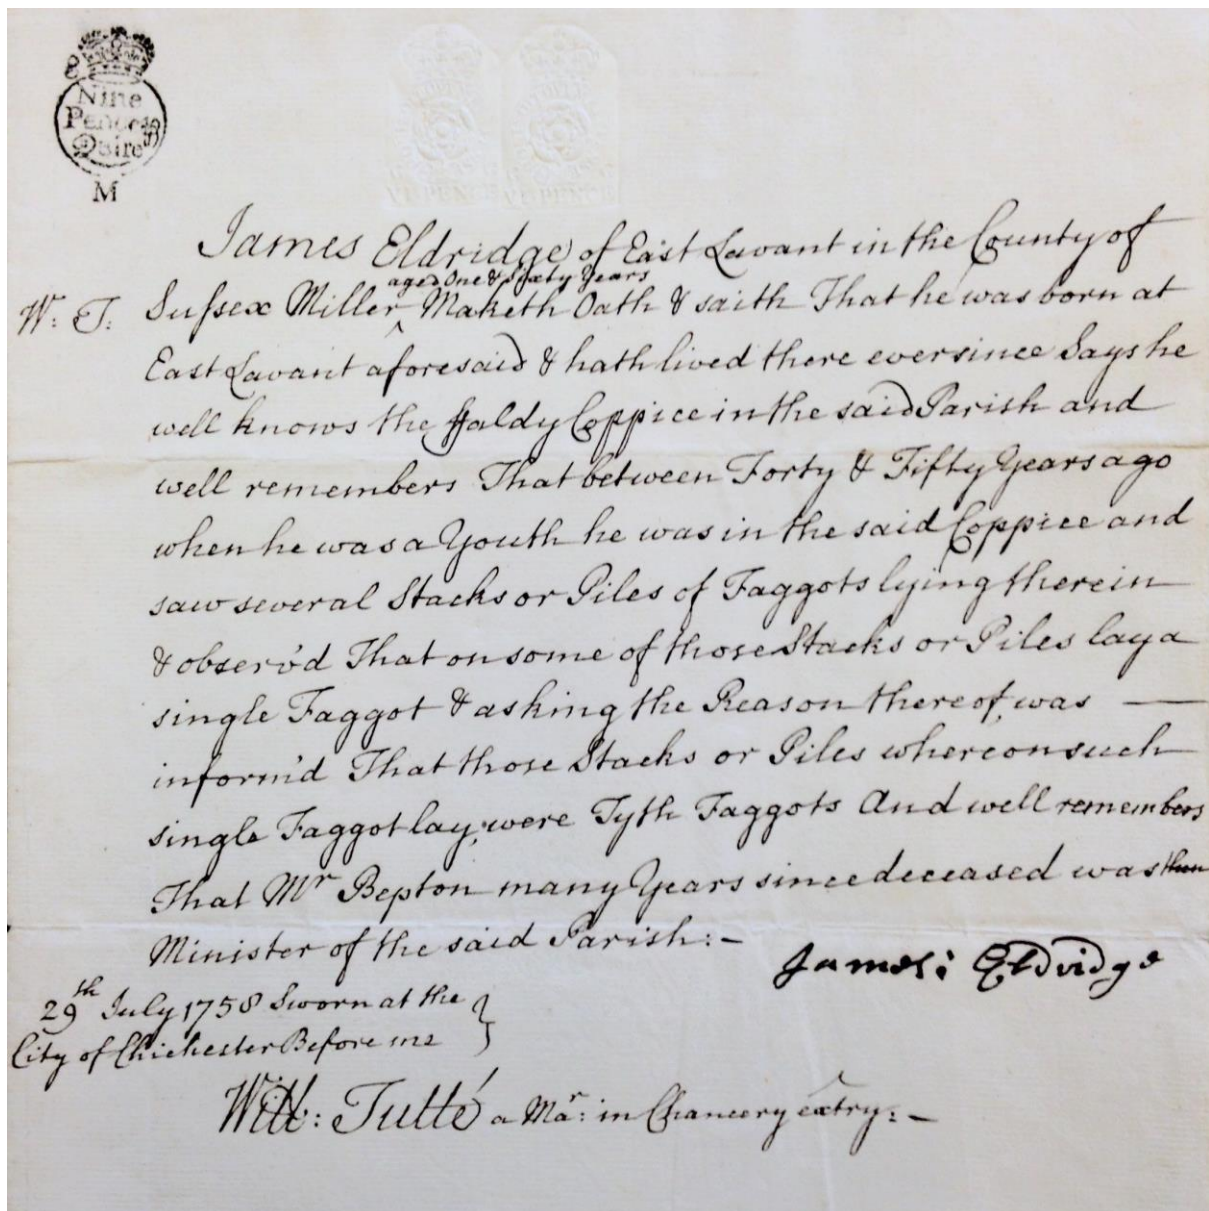 Nine
Pence ⅌
Quire
M
VI PENCE VI PENCE
James Eldridge of East Lavant in the County of
aged One & Sixty Years
W: T: Sussex Miller ^ Maketh Oath & saith That he was born at
East Lavant aforesaid & hath lived there ever since Says he
well knows the Haldy Coppice in the said Parish and
well remembers That between Forty & Fifty Years ago
when he was a Youth he was in the said Coppice and
saw several Stacks or Piles of Faggots lying therein
& observ'd That on some of those Stacks or Piles lay a
single Faggot & asking the Reason thereof, was —
inform'd That those Stacks or Piles whereon such
single Faggot lay, were Tyth Faggots And well remembers
That Mr Bepton many Years since deceased was then
Minister of the said Parish:-
James Eldridge
29th July 1758 Sworn at the
City of Chichester Before me
Will: Tutté a Mar: in Chancery extry:-